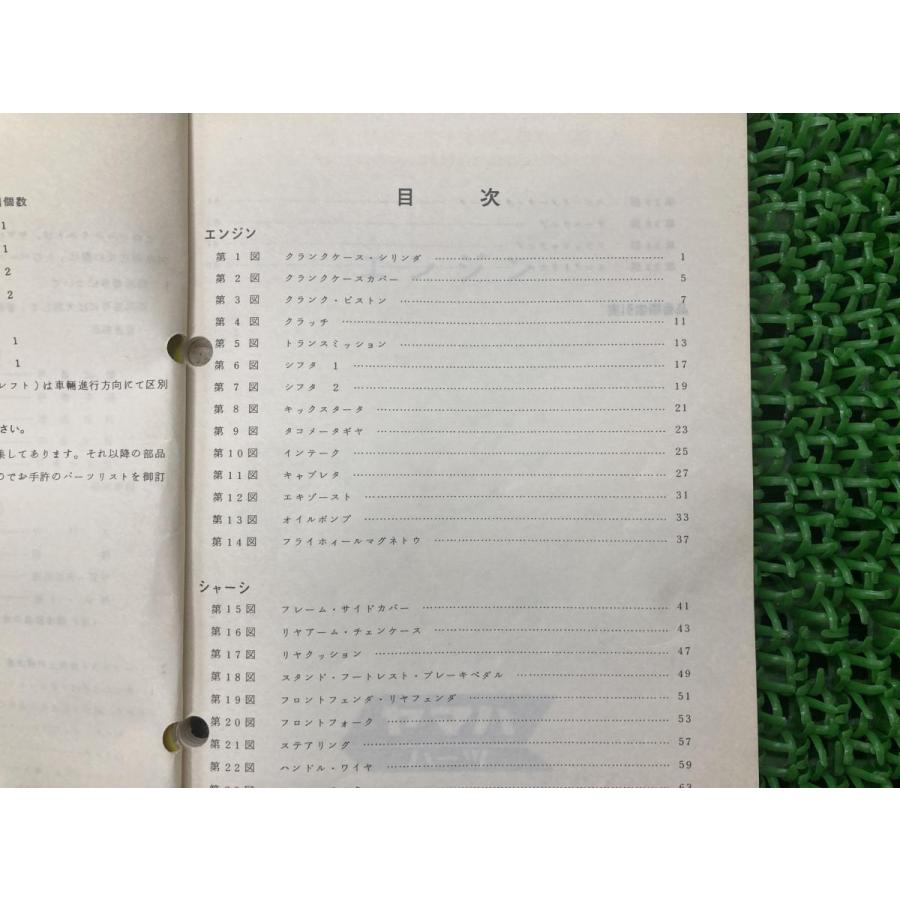 個数
1
1
2
2
1
1
レフト)は車輛進行方向にて区別
さい。
集してあります。それ以降の部品
のでお手許のパーツリストを御訂
目 次
エンジン
第 1 図 クランクケース・シリンダ 1
第 2 図 クランクケースカバー 5
第 3 図 クランク・ピストン 7
第 4 図 クラッチ 11
第 5 図 トランスミッション 13
第 6 図 シフタ 1 17
第 7 図 シフタ 2 19
第 8 図 キックスタータ 21
第 9 図 タコメータギヤ 23
第10図 インテーク 25
第11図 キャブレタ 27
第12図 エキゾースト 31
第13図 オイルポンプ 33
第14図 フライホィールマグネトウ 37
シャーシ
第15図 フレーム・サイドカバー 41
第16図 リヤアーム・チェンケース 43
第17図 リヤクッション 47
第18図 スタンド・フートレスト・ブレーキペダル 49
第19図 フロントフェンダ・リヤフェンダ 51
第20図 フロントフォーク 53
第21図 ステアリング 57
第22図 ハンドル・ワイヤ 59
63